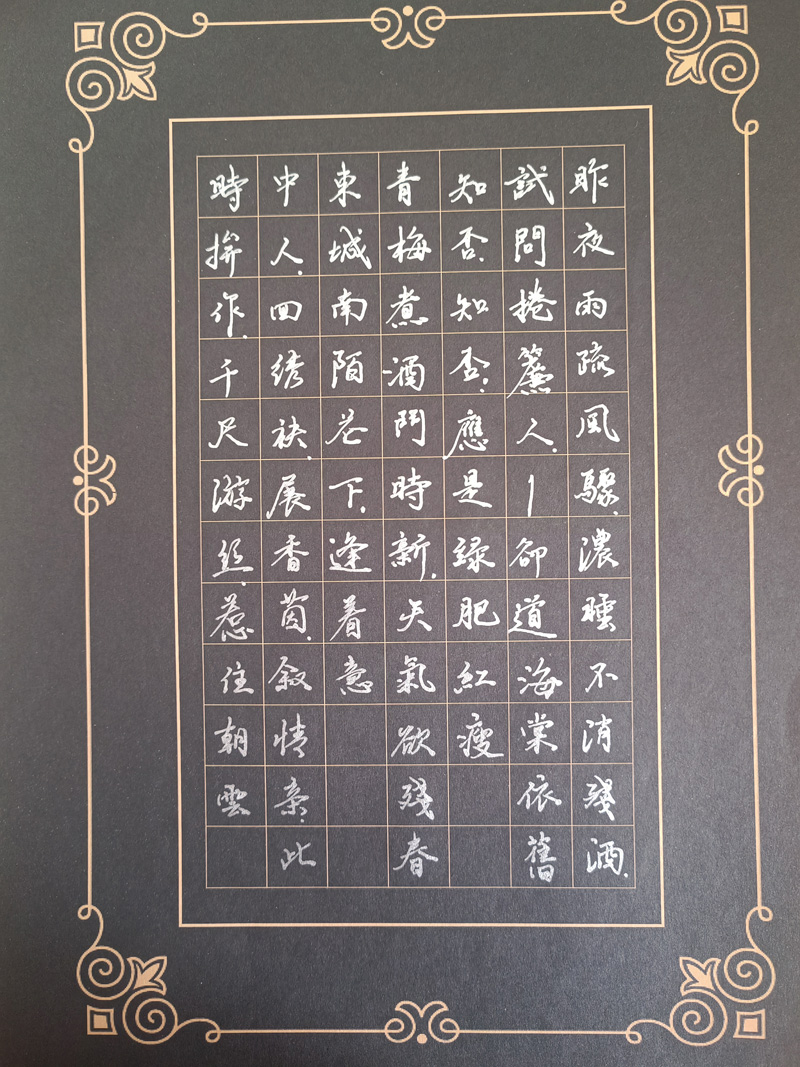 昨夜雨疏風驟.濃睡不消殘酒.
試問捲簾人.丨卻道海棠依舊
知否.知否.應是綠肥紅瘦
青梅煮酒鬥時新.天氣欲殘春
東城南陌花下.逢着意
中人.回綉袂.展香茵.敘情親.此
時拚作.千尺游絲.惹住朝雲